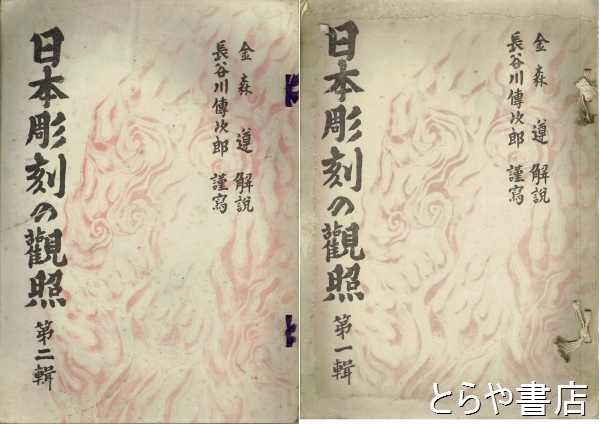 金森遵 解説
長谷川傳次郎 謹寫
日本彫刻の觀照 第二輯
金森遵 解説
長谷川傳次郎 謹寫
日本彫刻の觀照 第一輯
とらや書店